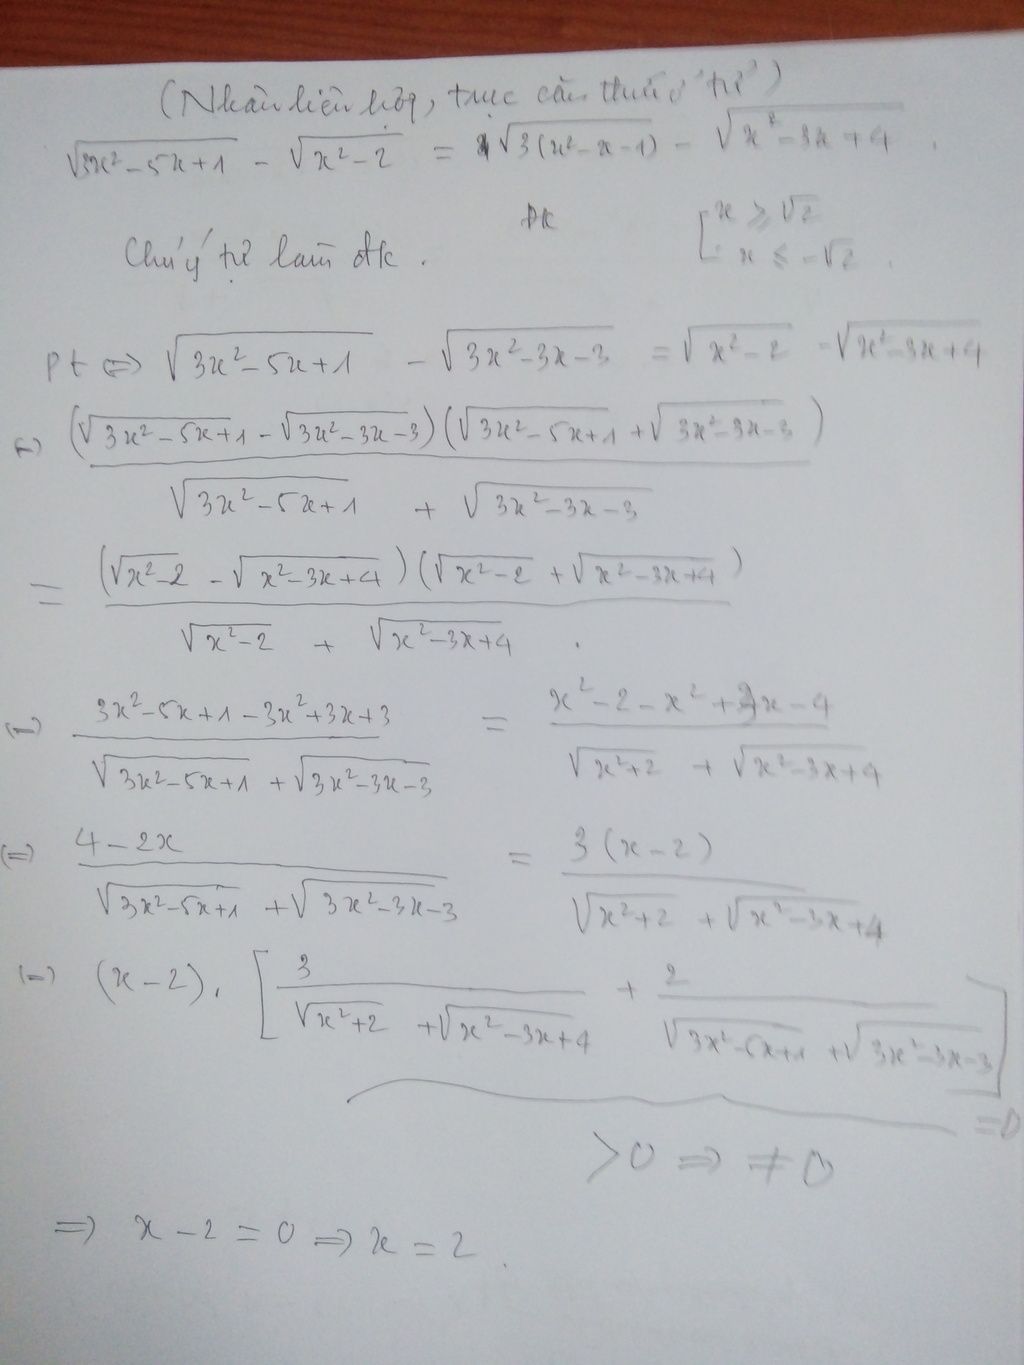 (Nhân liên hợp, trục căn thức ở tử)
√(3x²-5x+1) - √(x²-2) = √(3(x²-x-1)) - √(x²-3x+4) .
ĐK [ x ≥ √2
Chú ý tự làm đk . x ≤ -√2 .
Pt ⇔ √(3x²-5x+1) - √(3x²-3x-3) = √(x²-2) - √(x²-3x+4)
⇔ (√(3x²-5x+1) - √(3x²-3x-3))(√(3x²-5x+1) + √(3x²-3x-3))
√(3x²-5x+1) + √(3x²-3x-3)
= (√(x²-2) - √(x²-3x+4))(√(x²-2) + √(x²-3x+4))
√(x²-2) + √(x²-3x+4) .
⇔ 3x²-5x+1-3x²+3x+3 = x²-2-x²+3x-4
√(3x²-5x+1) + √(3x²-3x-3) √(x²+2) + √(x²-3x+4)
⇔ 4-2x = 3(x-2)
√(3x²-5x+1) + √(3x²-3x-3) √(x²+2) + √(x²-3x+4)
⇔ (x-2). [ 3 + 2 ]
√(x²+2) + √(x²-3x+4) √(3x²-5x+1) + √(3x²-3x-3)
=0
>0 ⇒ ≠0
⇒ x-2=0 ⇒ x=2 .